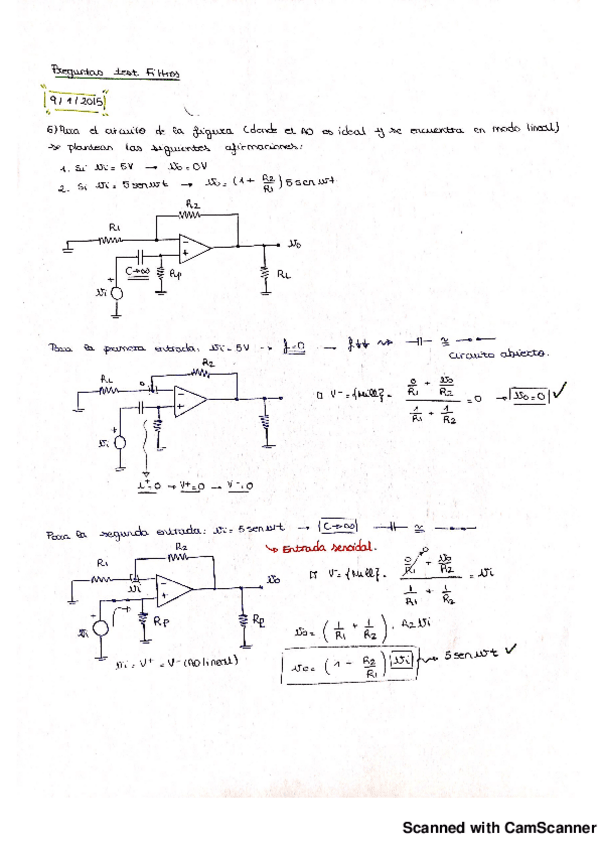 Preguntas test Filtros
9/1/2015
6) Para el circuito de la figura (donde el AO es ideal y se encuentra en modo lineal)
se plantean las siguientes afirmaciones:
1. Si vi = 5V → vo = 0V
2. Si vi = 5 sen wt → vo = (1 + R2/R1) 5 sen wt
R2
R1
vo
C→∞
Rp
RL
vi
Para la primera entrada: vi = 5V → f=0 → f↓↓
circuito abierto.
R2
vi
V- = {Mill} = (0/R1 + vo/R2) / (1/R1 + 1/R2) = 0 → vo=0 ✓
i+=0 → V+=0 → V-=0
Para la segunda entrada: vi = 5 sen wt → C→∞ ≅
Entrada senoidal.
R2
R1
vo
vi
Rp
V- = {Mill} = (0/R1 + vo/R2) / (1/R1 + 1/R2) = vi
vo = (1/R1 + 1/R2) · R2 vi
vi = V+ = V- (AO lineal)
vo = (1 - R2/R1) vi → 5 sen wt ✓
Scanned with CamScanner